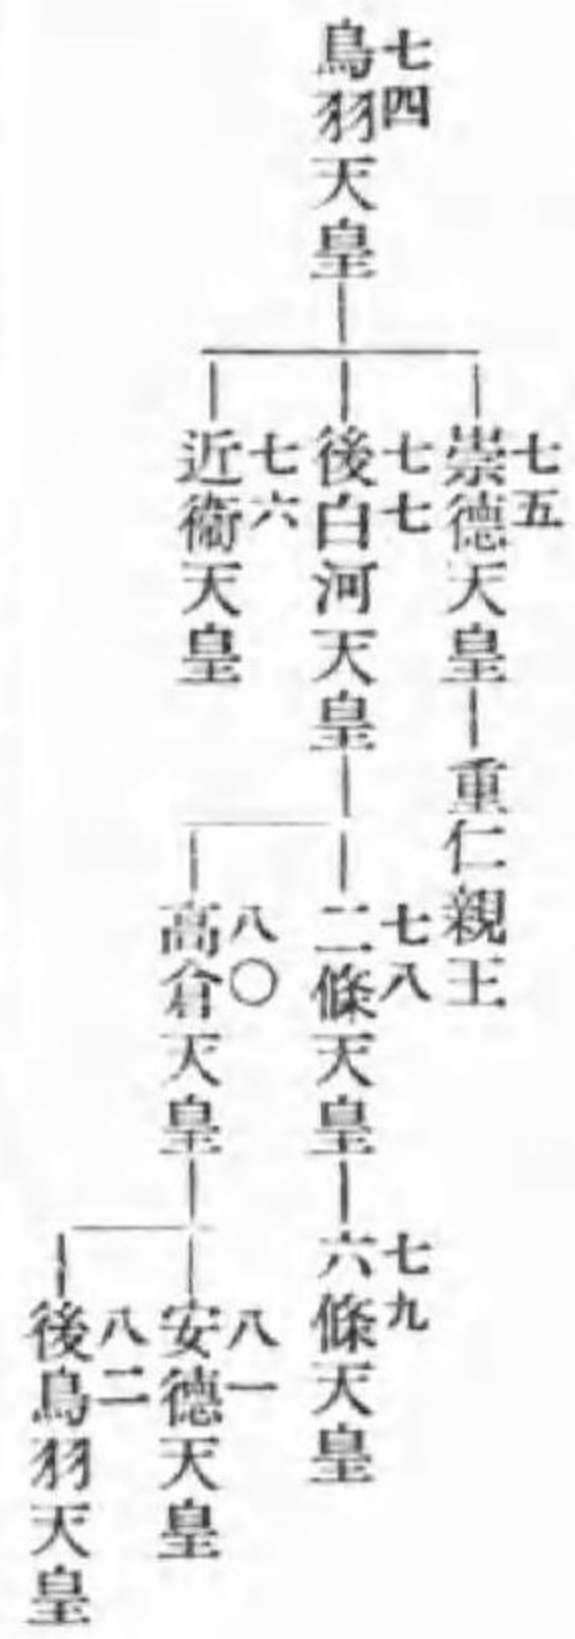 七四
鳥羽天皇
七五
崇德天皇
重仁親王
七七
後白河天皇
七六
近衞天皇
七八
二條天皇
七九
六條天皇
八〇
高倉天皇
八一
安德天皇
八二
後鳥羽天皇